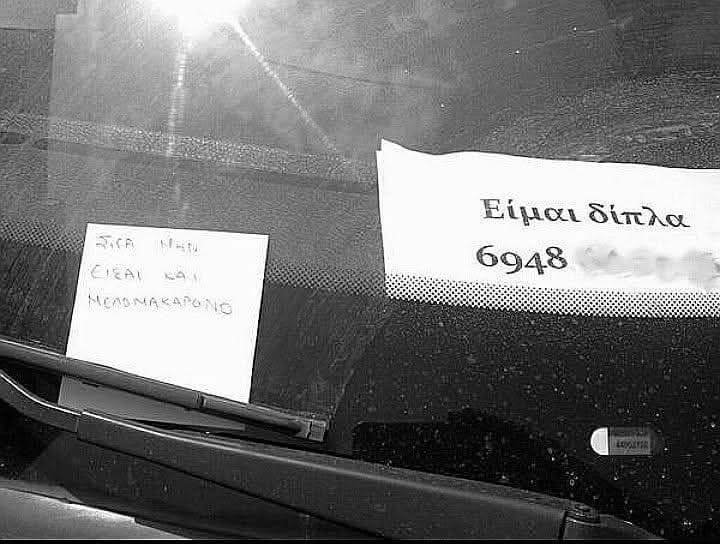 ΣΙΓΑ ΜΗΝ
ΕΙΣΑΙ ΚΑΙ
ΜΕΛΟΜΑΚΑΡΟΝΟ
Είμαι δίπλα
6948